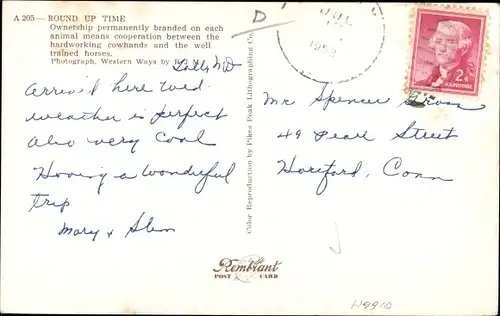 A 205— ROUND UP TIME
Ownership permanently branded on each
animal means cooperation between the
hardworking cowhands and the well
trained horses.
Photograph, Western Ways by
D
JUL
1958
Arrived here Wed.
weather is perfect
also very cool
Having a wonderful
trip
Mary +
Color Reproduction by Pikes Peak Lithographing Co.
2¢
U.S. POSTAGE
Mr Spencer
49 Pearl Street
Hartford, Conn
Rembrant
POST CARD
H9910